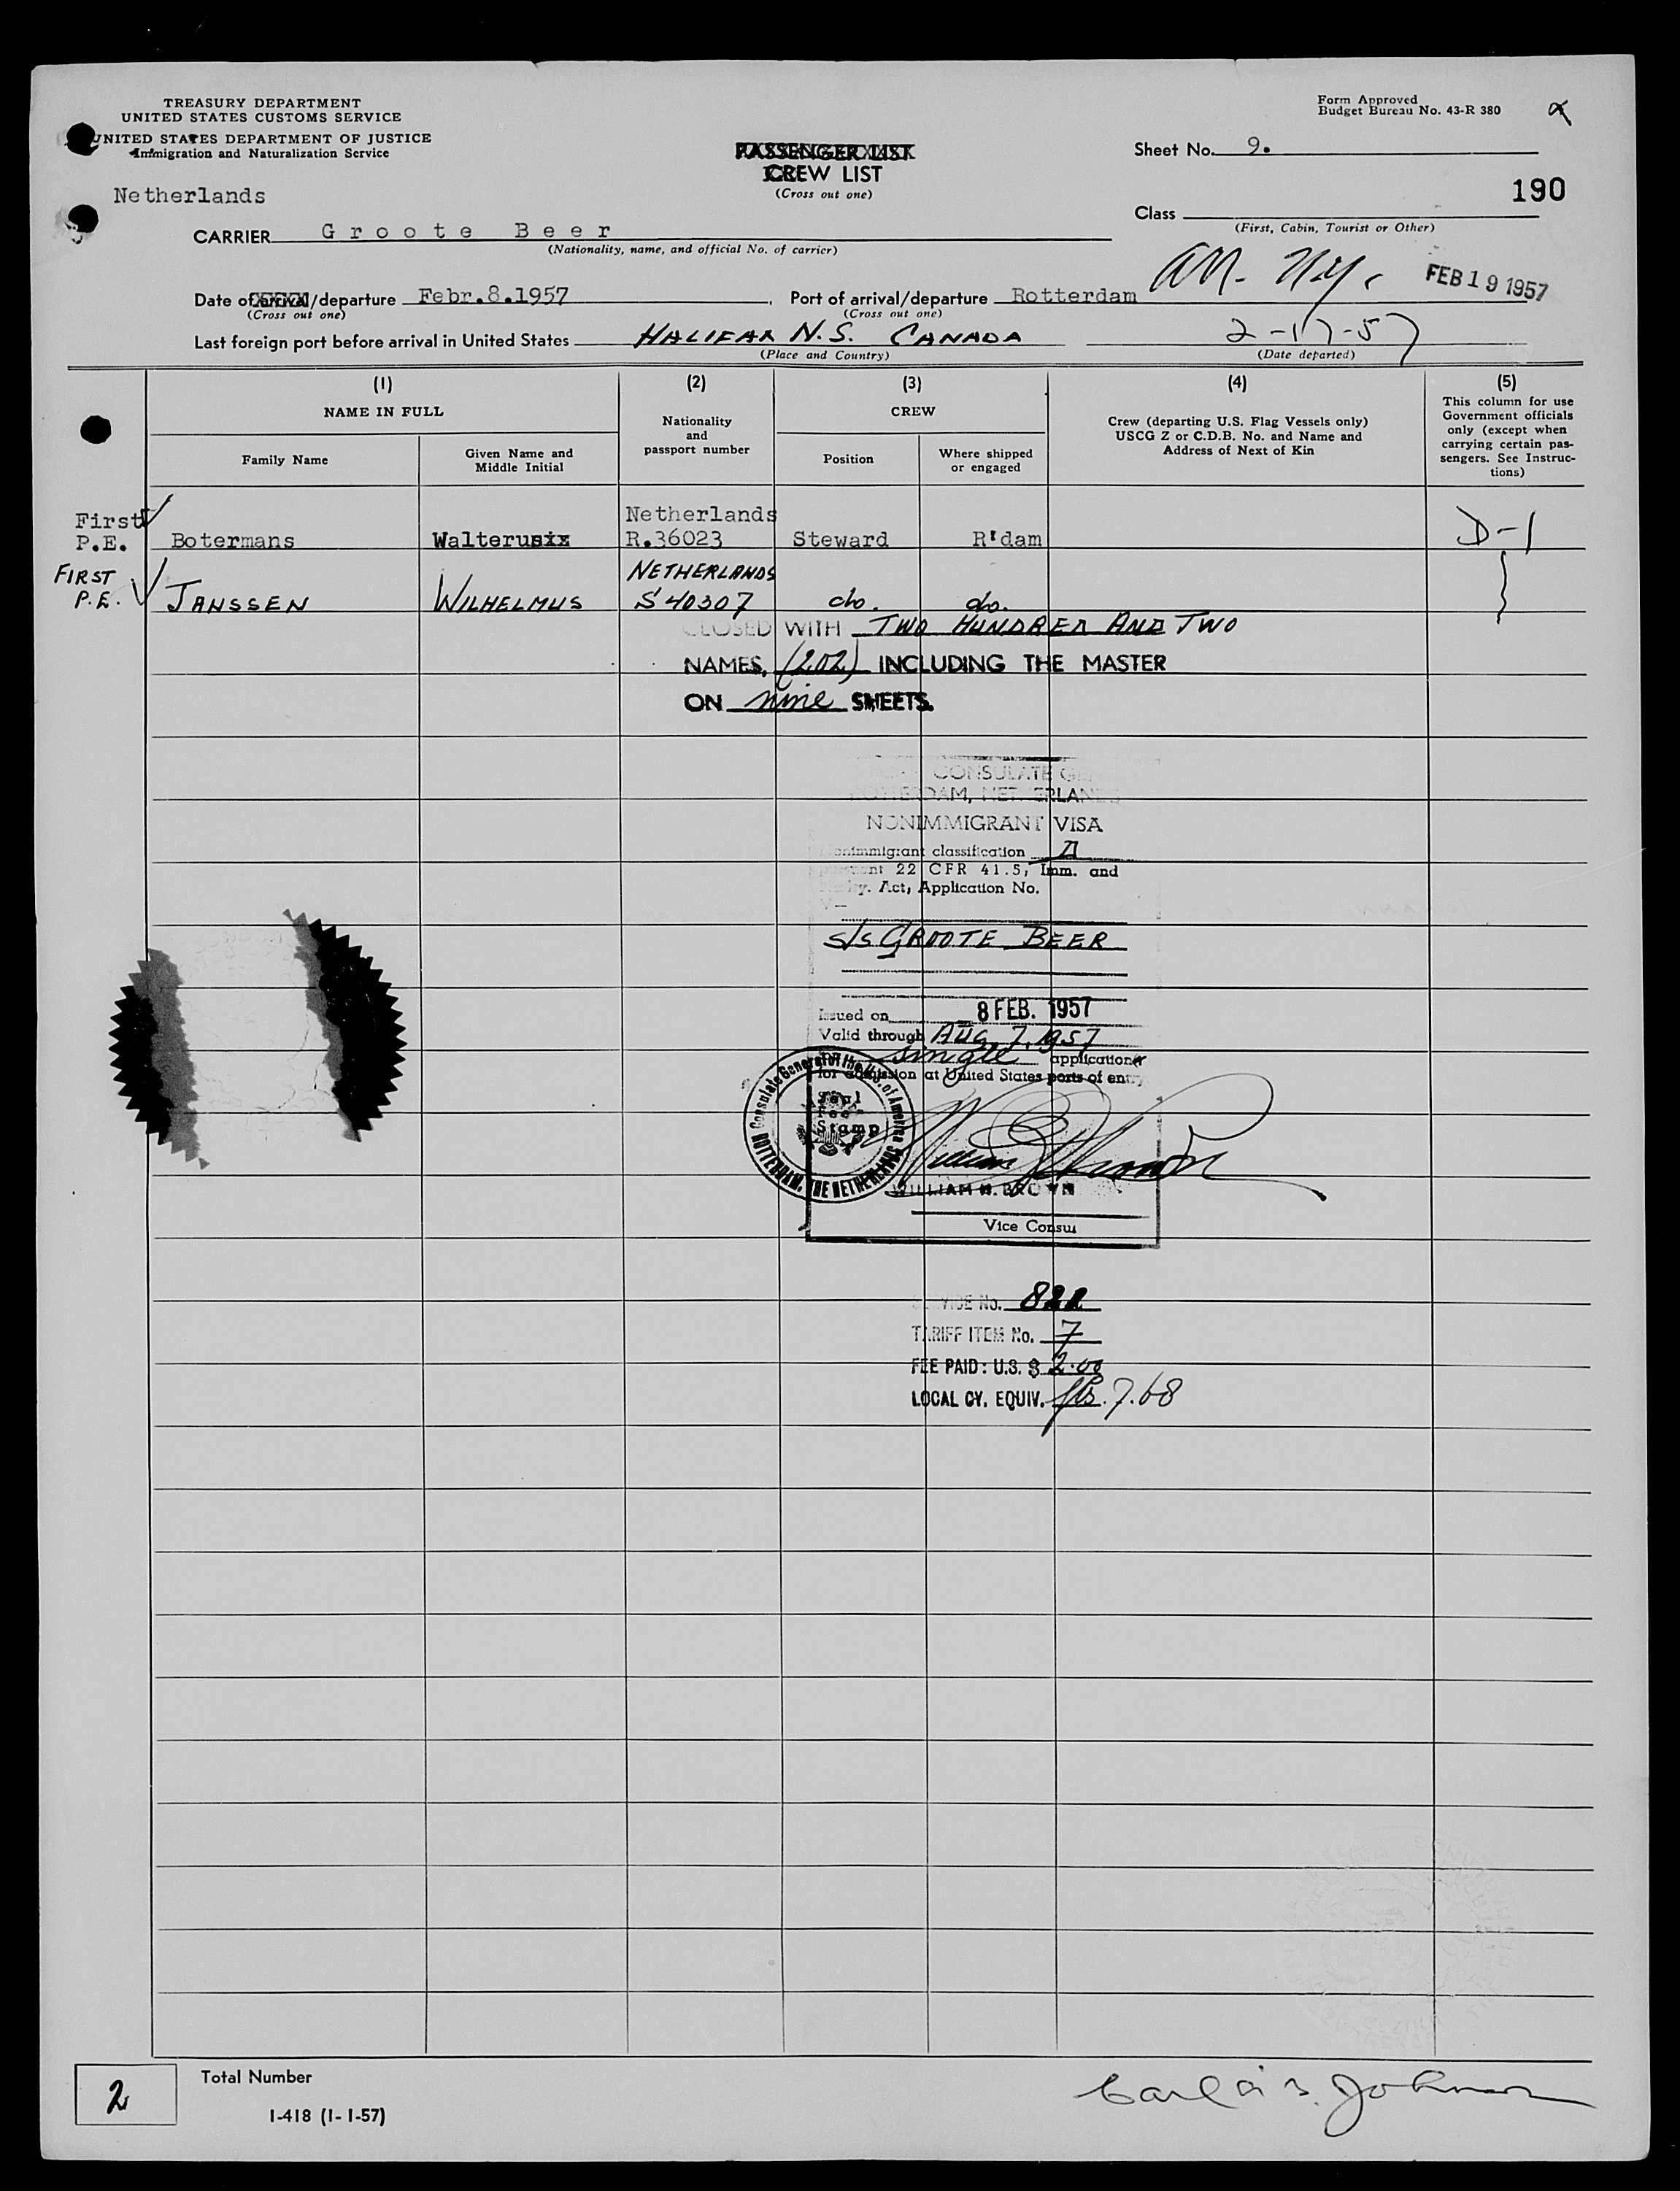 TREASURY DEPARTMENT
UNITED STATES CUSTOMS SERVICE
UNITED STATES DEPARTMENT OF JUSTICE
Immigration and Naturalization Service
Form Approved
Budget Bureau No. 43-R 380
PASSENGER LIST
CREW LIST
(Cross out one)
Sheet No. 9.
190
Netherlands
Class
(First, Cabin, Tourist or Other)
CARRIER Groote Beer
(Nationality, name, and official No. of carrier)
Arr. N.Y. FEB 19 1957
Date of arrival/departure Febr.8.1957. Port of arrival/departure Rotterdam
(Cross out one) (Cross out one)
Last foreign port before arrival in United States HALIFAX N.S. CANADA 2-17-57
(Place and Country) (Date departed)
(1) (2) (3) (4) (5)
NAME IN FULL
Family Name
Given Name and
Middle Initial
Nationality
and
passport number
CREW
Position
Where shipped
or engaged
Crew (departing U.S. Flag Vessels only)
USCG Z or C.D.B. No. and Name and
Address of Next of Kin
This column for use
Government officials
only (except when
carrying certain pas-
sengers. See Instruc-
tions)
First Netherlands
P.E. Botermans Walterus R.36023 Steward R'dam D-1
FIRST NETHERLANDS
P.E. JANSSEN WILHELMUS S 40307 do. do.
CLOSED WITH TWO HUNDRED AND TWO
NAMES, (202) INCLUDING THE MASTER
ON nine SHEETS.
CONSULATE
ROTTERDAM, NETHERLANDS
NONIMMIGRANT VISA
Nonimmigrant classification D
22 CFR 41.5, Imm. and
Act, Application No.
V—
S/S GROOTE BEER
Issued on 8 FEB. 1957
Valid through AUG. 7. 1957
single application
for admission at United States ports of entry
Consulate General of the U.S. of America
ROTTERDAM, THE NETHERLANDS
Seal
Fee
Stamp
WILLIAM H. BROWN
Vice Consul
SERVICE No. 822
TARIFF ITEM No. 7
FEE PAID: U.S. $ 2.00
LOCAL CY. EQUIV. fls. 7.68
2
Total Number
I-418 (1-1-57)
Johnson